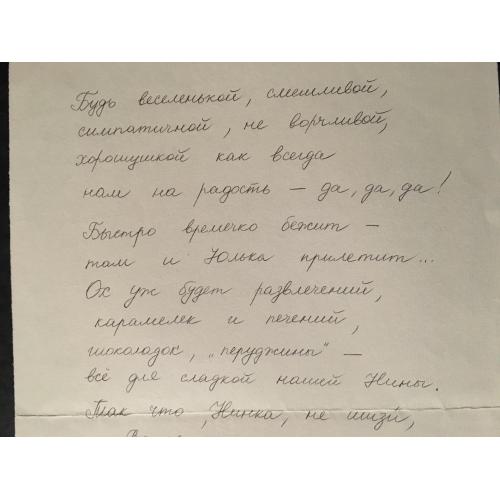 Будь веселенькой, смешливой,
симпатичной, не ворчливой,
хорошушкой как всегда
нам на радость – да, да, да!
Быстро времечко бежит –
там и Юлька прилетит...
Ох уж будет развлечений,
карамелек и печений,
шоколадок, „перуджины" –
всё для сладкой нашей Нины.
Так что, Нинка, не шизи,